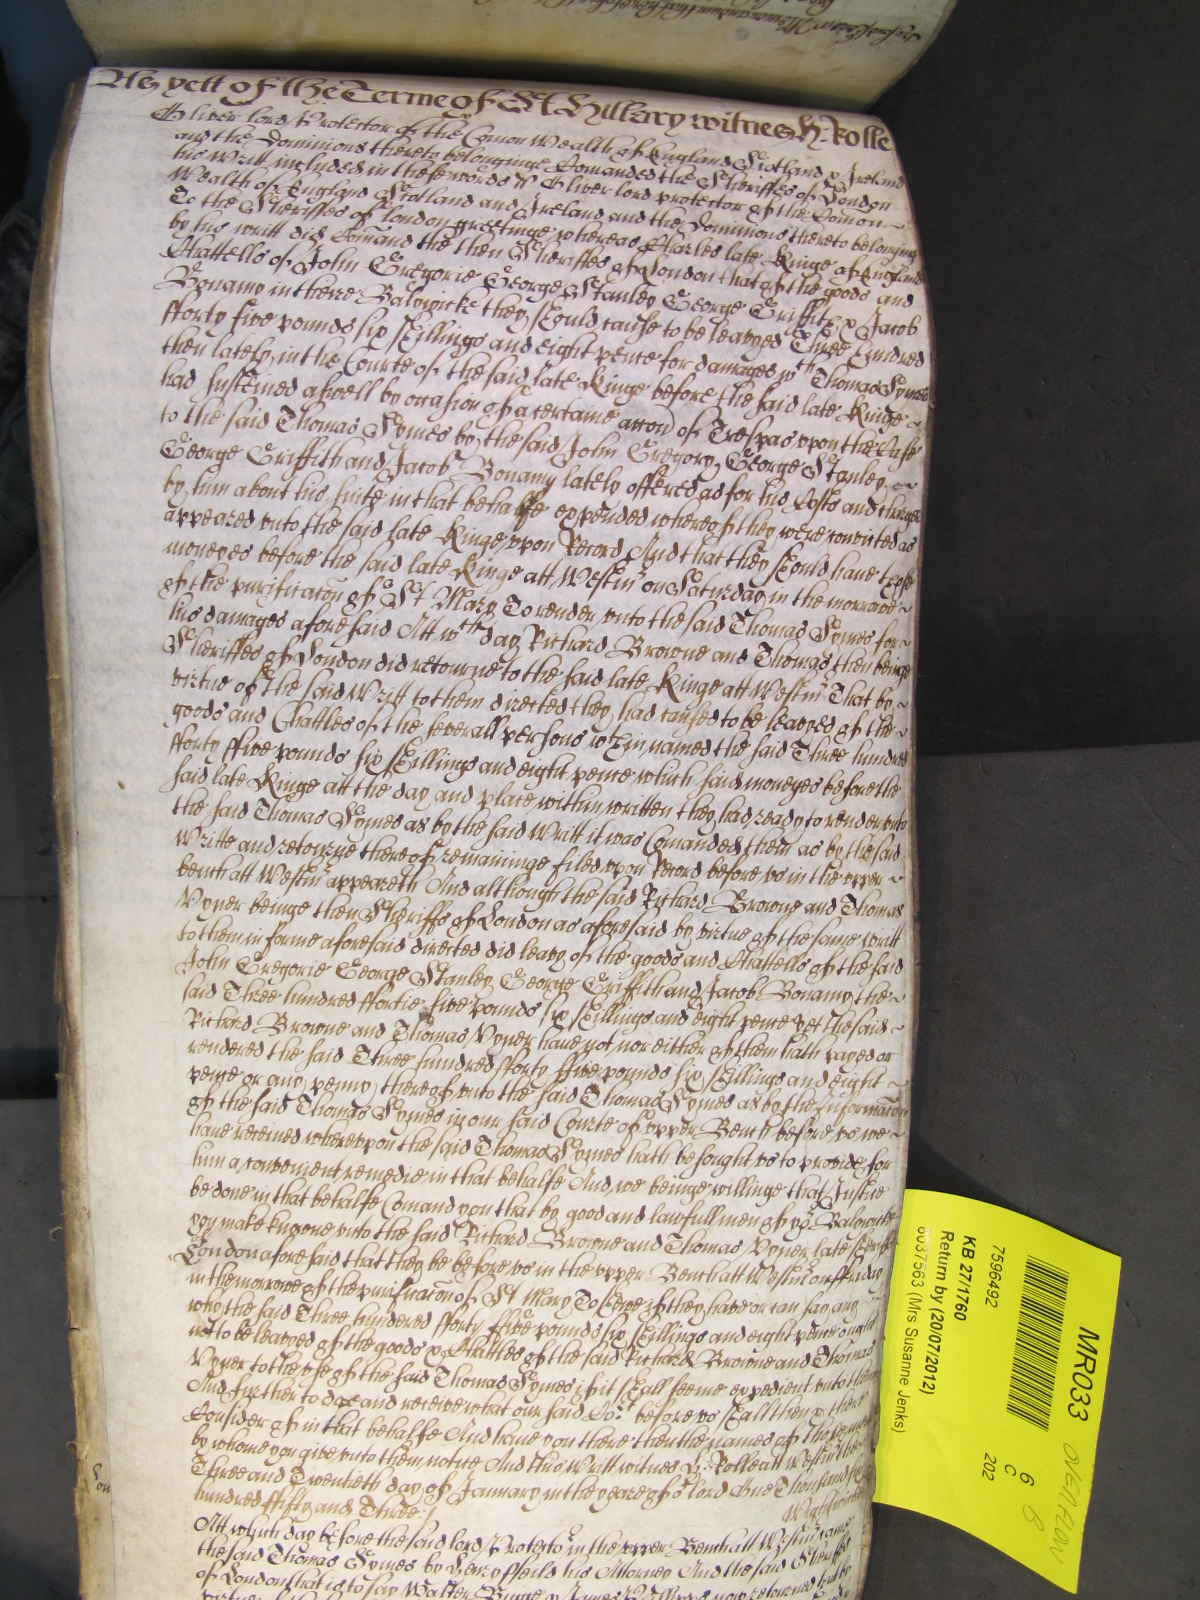 As yett of the Terme of St Hillary witnes H. Rolle
Oliver lord Protector of the Comon Wealth of England Scotland & Ireland
and the Dominions thereto belonginge Comanded the Sheriffes of London
his Writt included in these words Oliver lord protector of the Comon
Wealth of England Scotland and Ireland and the Dominions thereto belonging
To the Sheriffes of London greetinge whereas Charles late Kinge of England
by his writt did Comand the then Sheriffes of London that of the goods and
Chattells of John Gregorie George Stanley George Griffith & Jacob
Bonamy in theire Balywicke they should cause to be leavyed Three hundred
fforty five pounds six shillings and eight pence for damages wch Thomas Symes
then lately in the Courte of the said late Kinge before the said late Kinge
had susteined aswell by occasion of a certaine accon of Trespas upon the Case
to the said Thomas Symes by the said John Gregory George Stanley
George Griffith and Jacob Bonamy lately offered as for his Costs and charges
by him about his suite in that behalfe expended whereof they were convicted as
appeared unto the said late Kinge upon Record And that they should have those
moneyes before the said late Kinge att Westmr on Saturday in the morrowe
of the purificacon of St Mary To render unto the said Thomas Symes for
his damages aforesaid Att wch day Richard Browne and Thomas then beinge
Sheriffes of London did retourne to the said late Kinge att Westmr That by
virtue of the said Writt to them directed they had caused to be leavyed of the
goods and Chattles of the severall persons wthin named the said Three hundred
fforty ffive pounds six shillings and eight pence which said moneyes before the
said late Kinge att the day and place within written they had ready to render unto
the said Thomas Symes as by the said Writt it was Comanded them as by the said
Writte and retourne thereof remaininge filed upon Record before us in the upper
bench att Westmr appeareth And although the said Richard Browne and Thomas
Vyner beinge then Sheriffs of London as aforesaid by virtue of the same writt
to them in forme aforesaid directed did leavy of the goods and Chattells of the said
John Gregorie George Stanley George Griffith and Jacob Bonamy the
said Three hundred ffortie five pounds six shillings and eight pence yet the said
Richard Browne and Thomas Vyner have not nor either of them hath payed or
rendered the said Three hundred fforty ffive pounds six shillings and eight
pence or any penny thereof unto the said Thomas Symes as by the Informacon
of the said Thomas Symes in our said Courte of upper Bench before us we
have received whereupon the said Thomas Symes hath besought us to provide for
him a convenient remedie in that behalfe And we beinge willinge that Justice
be done in that behalfe Comand you that by good and lawfull men of yor Balywicke
you make knowne unto the said Richard Browne and Thomas Vyner late Sheriffes
London aforesaid that they be before us in the upper Bench att Westmr on ffriday
in the morrowe of the purificacon of St Mary To shewe if they have or can say any
why the said Three hundered fforty ffive pounds six shillings and eight pence ought
not to be leavyed of the goods & Chattles of the said Richard Browne and Thomas
Vyner to the use of the said Thomas Symes if it shall seeme expedient unto them
And further to doe and receive what our said Cort before us shall then & there
Consider of in that behalfe And have you there then the names of those
by whome you give unto them notice And this Writt witnes H. Rolle att Westmr the
Three and Twentieth day of January in the yeare of or lord One Thousand six
hundred ffifty and Three
Wightwicke
Att which day before the said lord Protector in the upper Bench att Westmr came
the said Thomas Symes by Henry ffeild his Attorney And the said Sheriffes
of London that is to say Walter Bigge & James Phillipps now retourned that by
Lon
MR033
OVERFLOW
7596492
6
C
202
KB 27/1760
Return by (20/07/2012)
8037563 (Mrs Susanne Jenks)